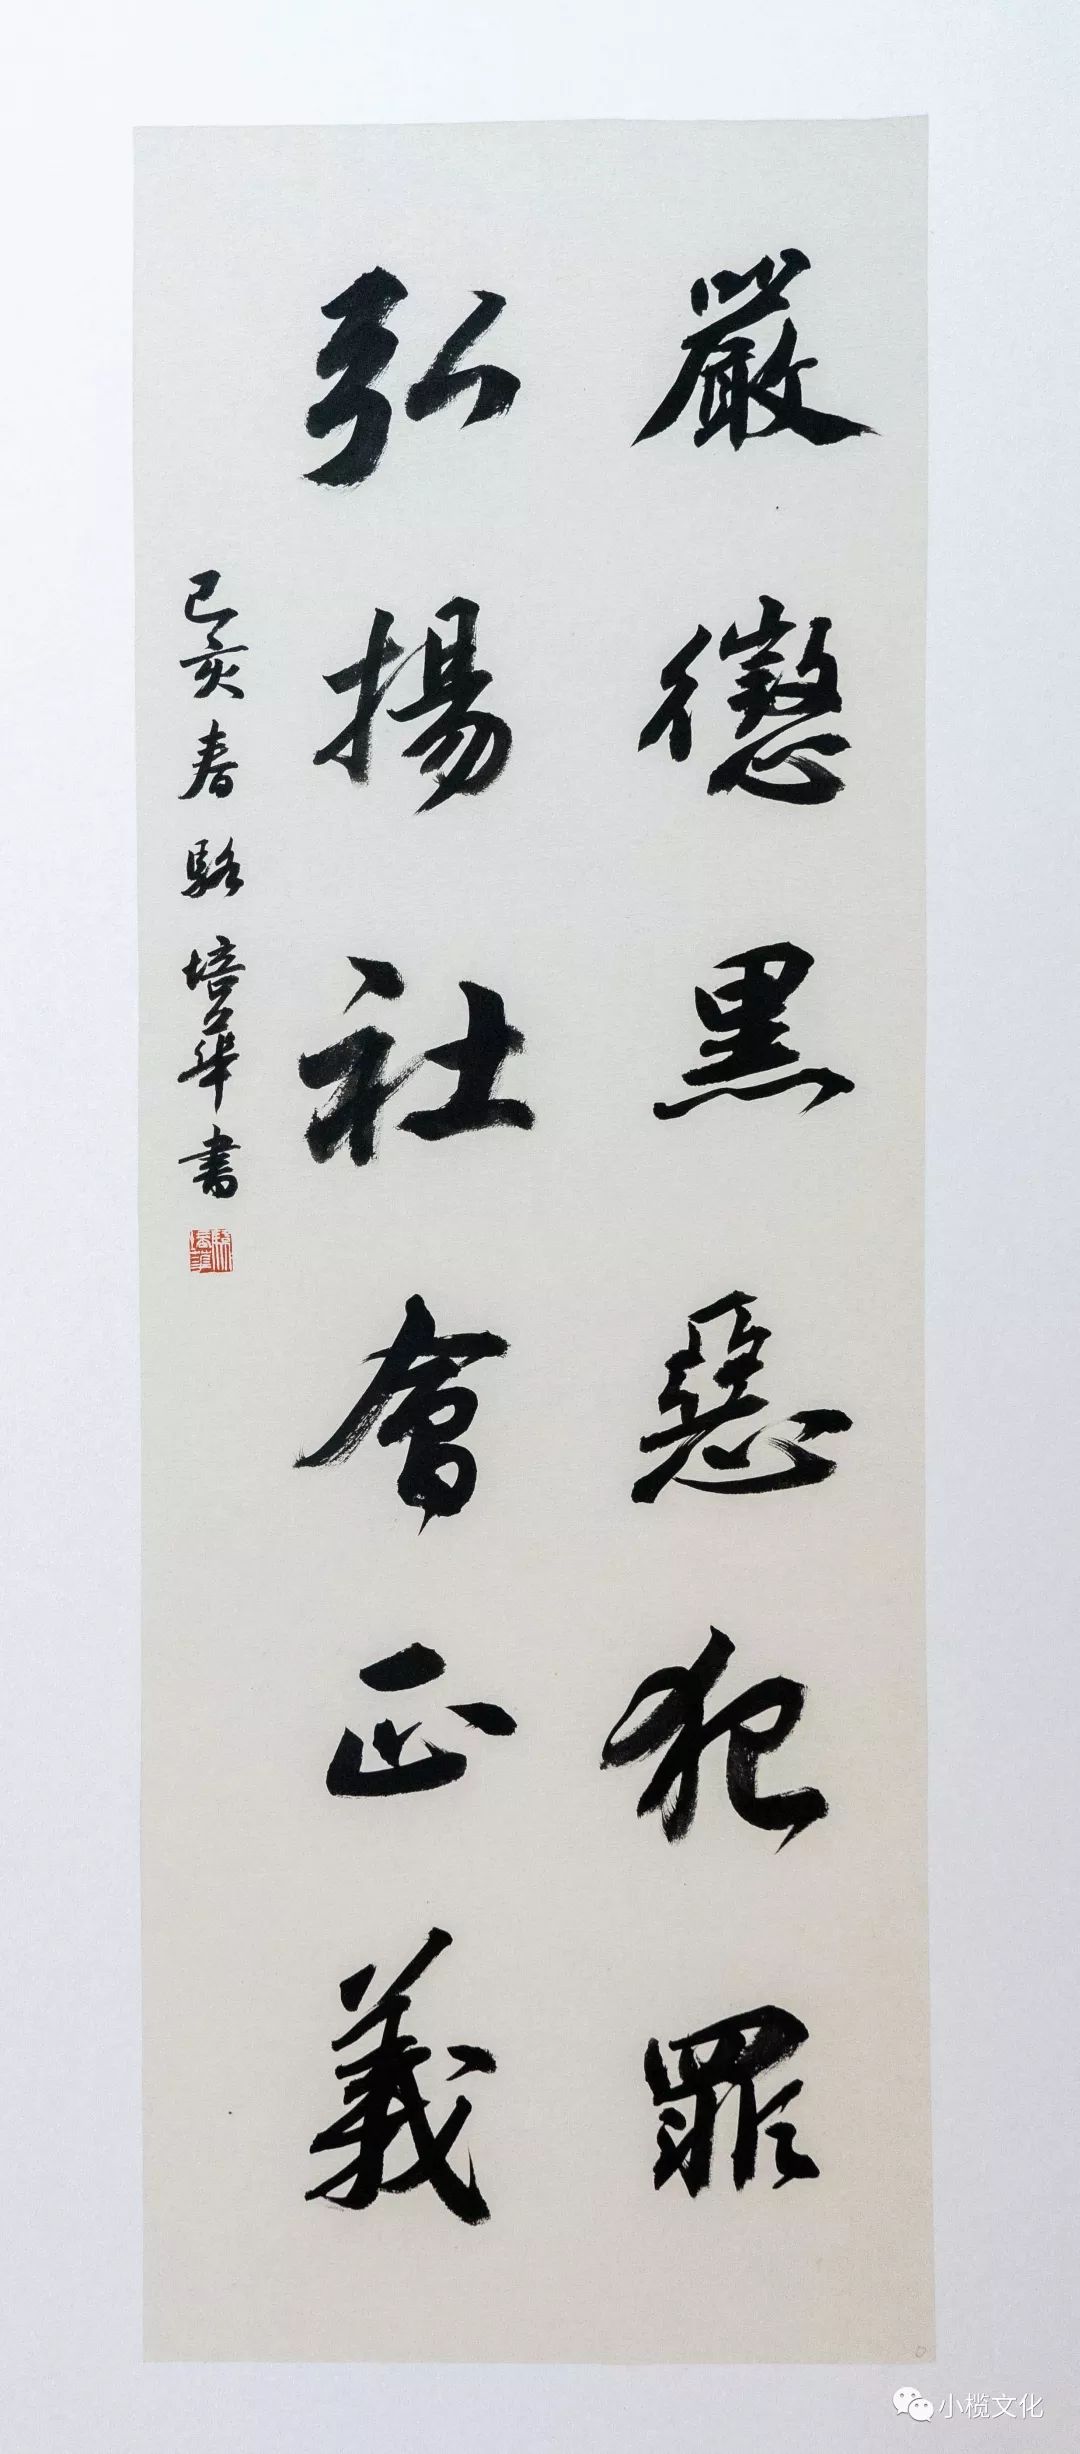 嚴懲黑惡犯罪
弘揚社會正義
己亥春駱培華書
駱培華
小榄文化